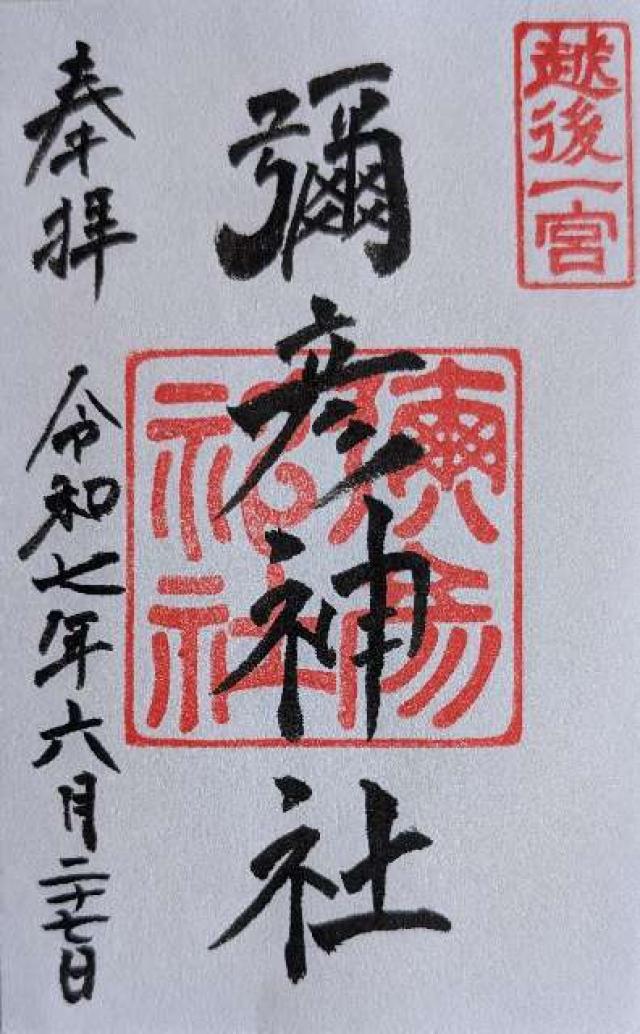 越後一宮
彌彦神社
彌彦
神社
奉拝
令和七年六月二十七日